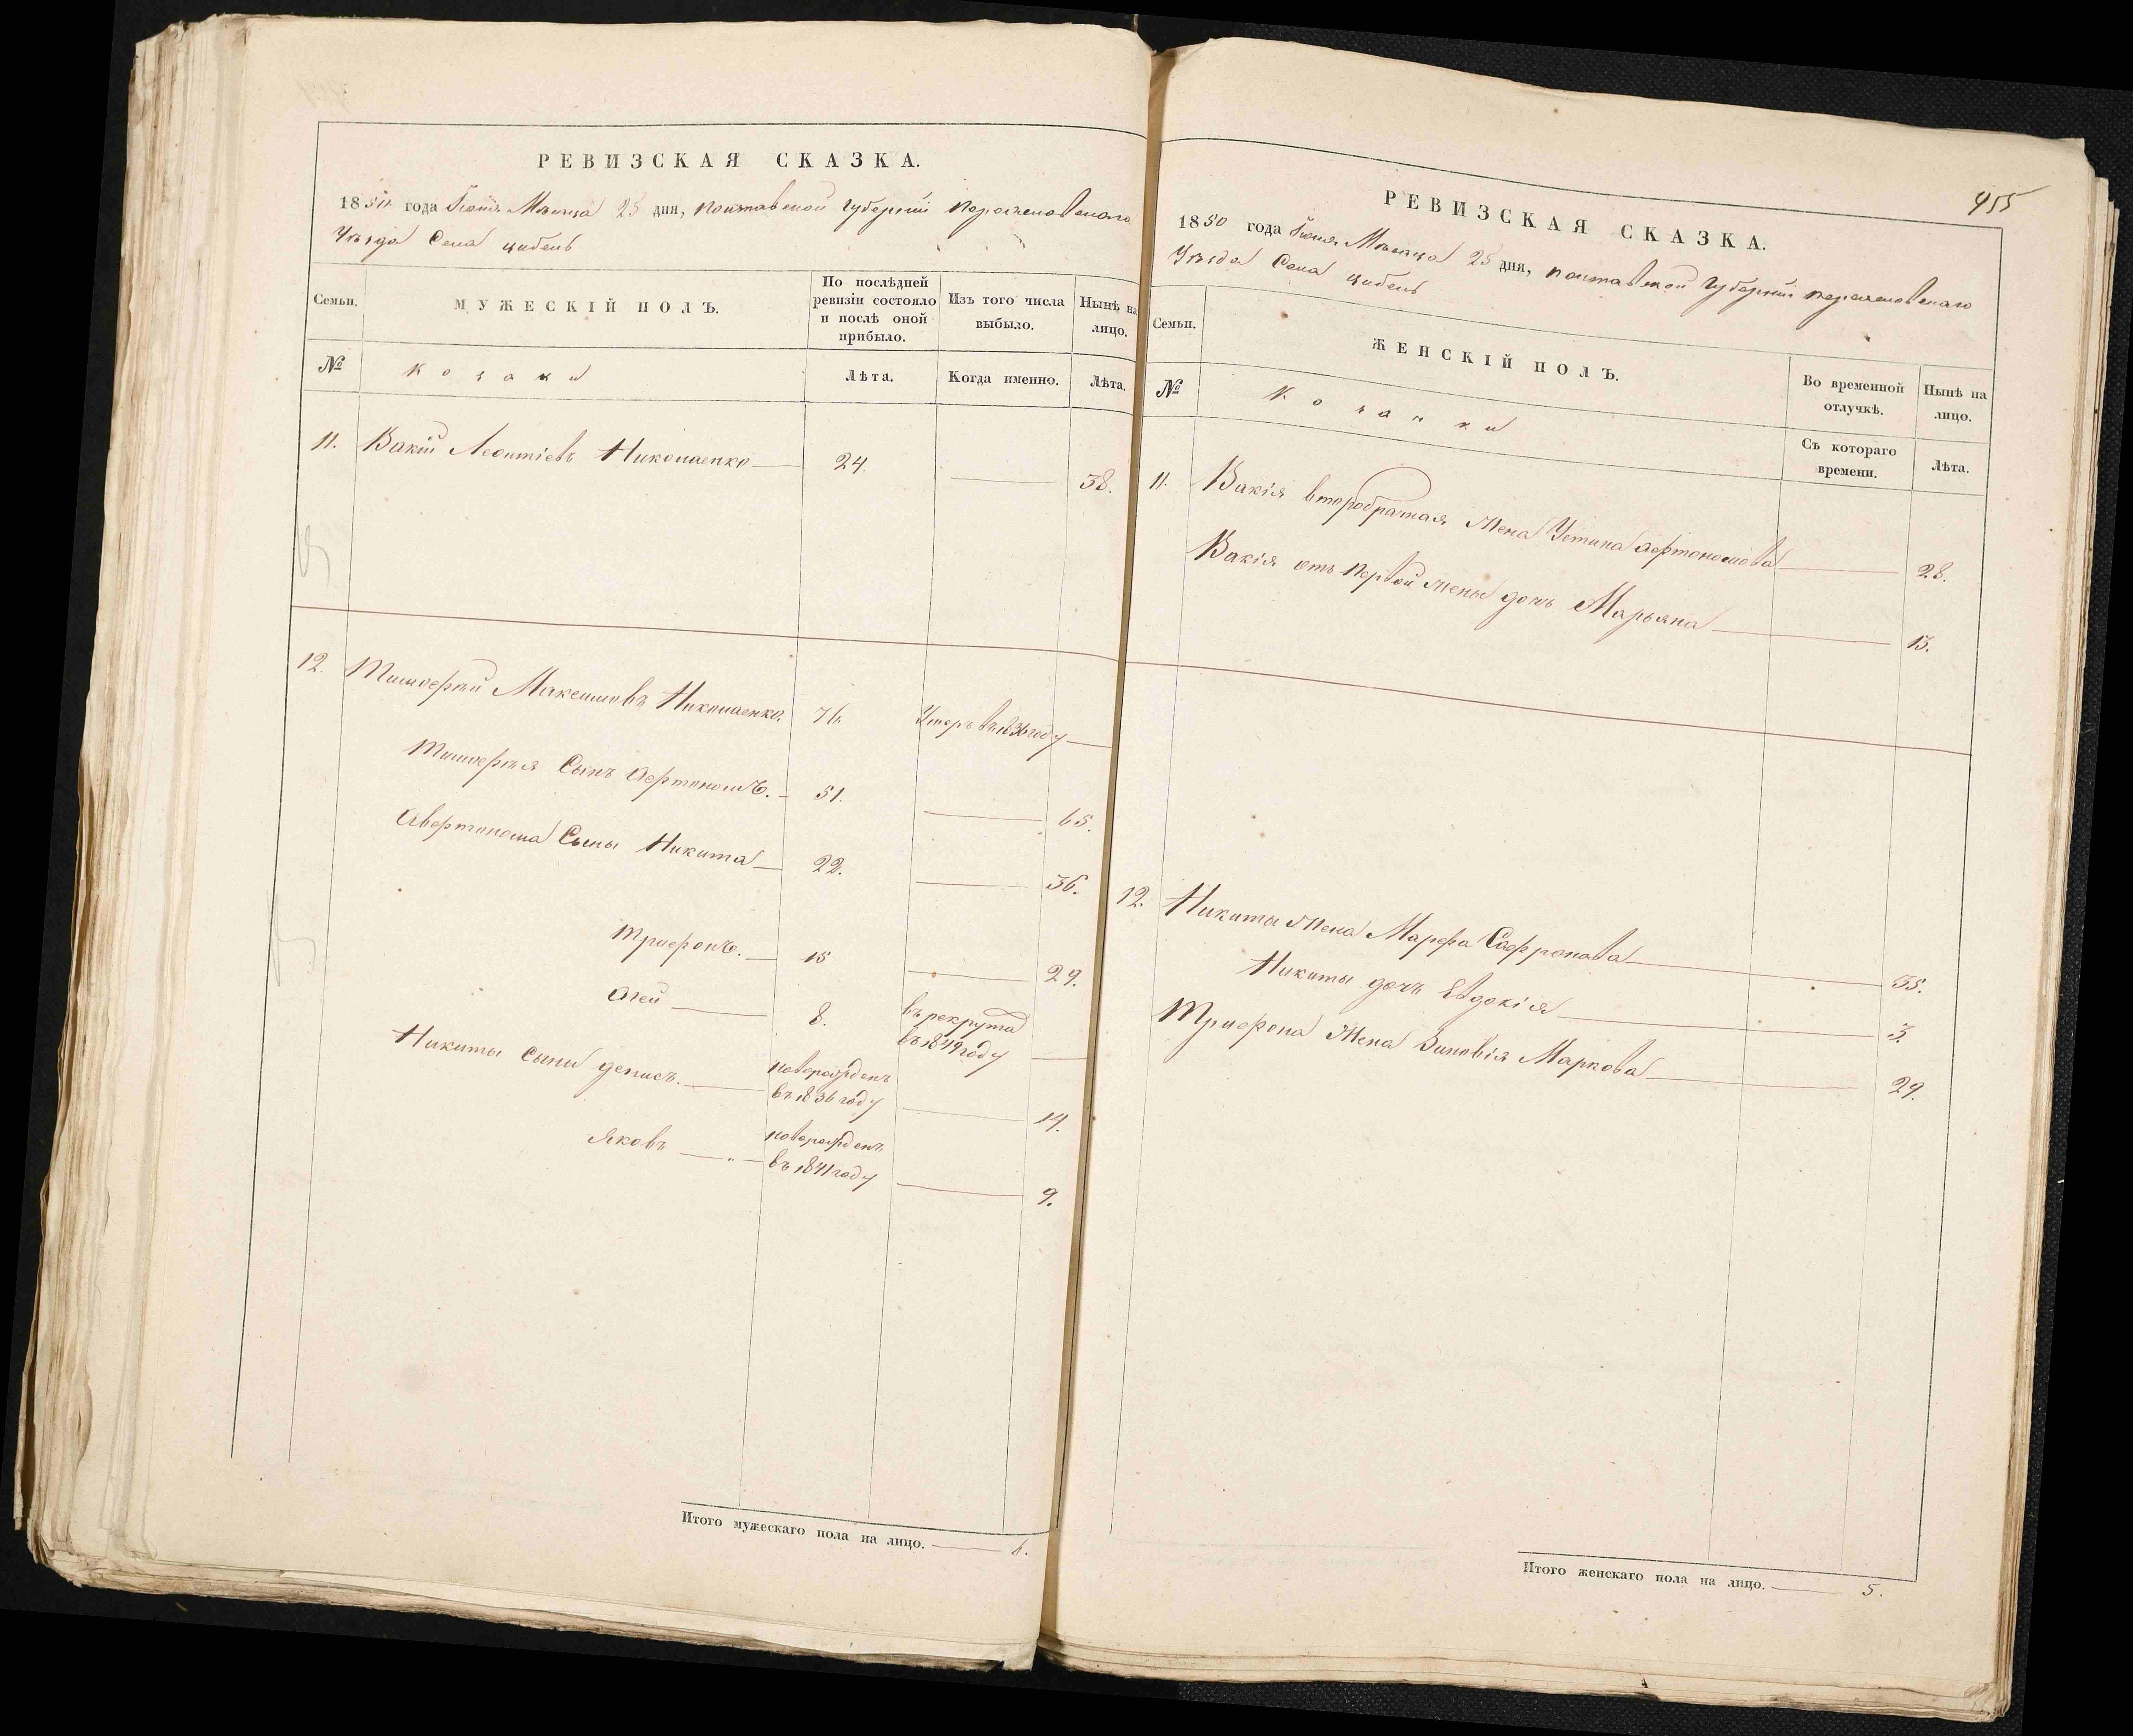 РЕВИЗСКАЯ СКАЗКА.
1850 года Іюня Мѣсяца 25 дня, Полтавской Губерніи Переяславскаго
Уѣзда Села Цибель
Семьи.
МУЖЕСКІЙ ПОЛЪ.
По послѣдней ревизіи состояло и послѣ оной прибыло.
Изъ того числа выбыло.
Нынѣ на лицо.
№
Козаки
Лѣта.
Когда именно.
Лѣта.
11. Вакій Леонтіевъ Николаенко 24. 38.
12. Тимоѳей Максимовъ Николаенко. 76. Умеръ въ 1836 году
Тимоѳея Сынъ Афтономъ. 51. 65.
Автонома Сыны Никита 22. 36.
Трифонъ. 15 29.
Агей 8. въ рекрута
въ 1849 году
Никиты Сыни денисъ. новорожденъ
въ 1836 году 14.
Яковъ новорожденъ
въ 1841 году 9.
Итого мужескаго пола на лицо. 6.
455
РЕВИЗСКАЯ СКАЗКА.
1850 года Іюня Мѣсяца 25 дня, Полтавской Губерніи Переяславскаго
Уѣзда Села Цибель
Семьи.
ЖЕНСКІЙ ПОЛЪ.
Во временной отлучкѣ.
Нынѣ на лицо.
№
Козачки
Съ котораго времени.
Лѣта.
11. Вакія второбрачная Жена Устина Афтономова 28.
Вакія отъ первой жены дочь Марьяна 13.
12. Никиты Жена Марфа Сафронова 35.
Никиты дочь Евдокія 3.
Трифона Жена Зиновія Маркова 29.
Итого женскаго пола на лицо. 5.